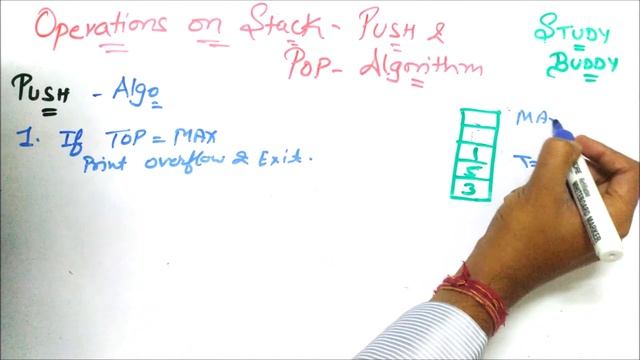 Operations on Stack - PUSH &
POP - Algorithm
STUDY
BUDDY
PUSH - Algo
1. If TOP = MAX
Print overflow & Exit.
MAX
T=
1
5
3